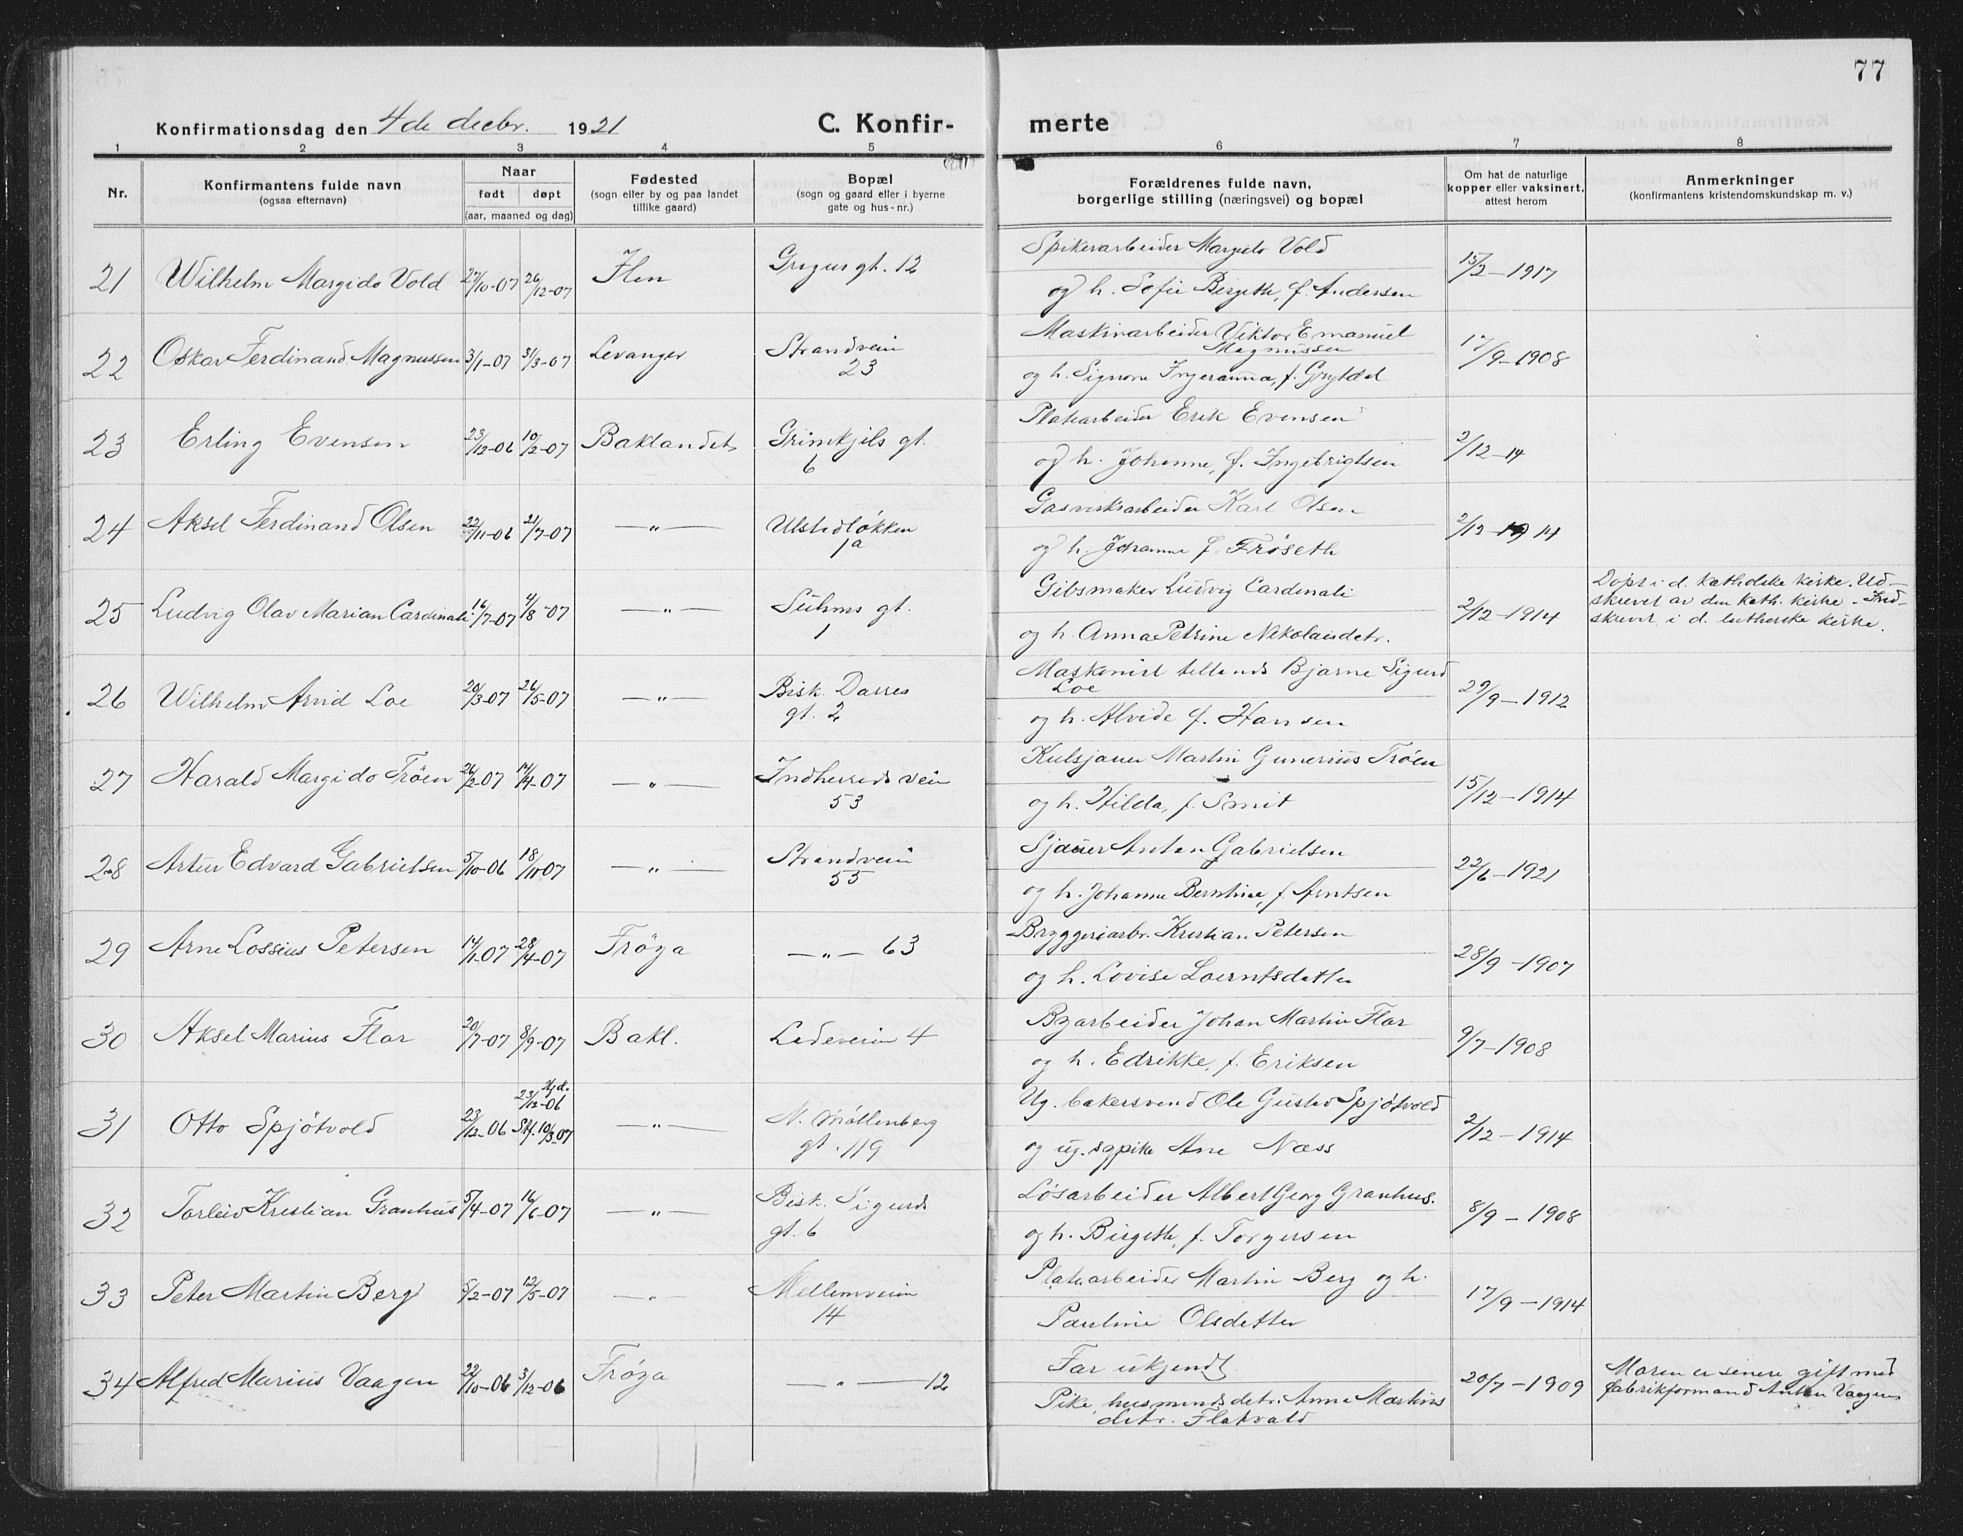 77
Konfirmationsdag den 4de decbr. 1921 C. Konfir- merte
1 2 3 4 5 6 7 8
Nr. Konfirmantens fulde navn (ogsaa efternavn) Naar født døpt (aar, maaned og dag) Fødested (sogn eller by og paa landet tillike gaard) Bopæl (sogn og gaard eller i byerne gate og hus-nr.) Forældrenes fulde navn, borgerlige stilling (næringsvei) og bopæl Om hat de naturlige kopper eller vaksinert, attest herom Anmerkninger (konfirmantens kristendomskundskap m. v.)
21 Wilhelm Margido Vold 27/10-07 26/12-07 Ilen Gregus gt. 12 Spikerarbeider Margido Vold
og h. Sofie Bergitte, f. Andersen 15/2-1917
22 Oskar Ferdinand Magnussen 3/1-07 31/3-07 Levanger Strandveien 23 Maskinarbeider Viktor Emanuel Magnussen
og h. Signora Ingeranna, f. 17/9-1908
23 Erling Evensen 23/12-06 10/2-07 Baklandet Grimkjils gt. 6 Platearbeider Erik Evensen
og h. Johanne, f. Ingebrigtsen 2/12-14
24 Aksel Ferdinand Olsen 22/11-06 21/7-07 —„— Ulstadløkken 1a Gasverksarbeider Karl Olsen
og h. Johanne f. Frøseth 2/12-1914
25 Ludvig Olav Marian Cardinali 16/7-07 4/8-07 —„— Suhms gt. 1 Gibsmaker Ludvig Cardinali
og h. Anna Petrine Nikolaisdetr. 2/12-1914 Døpt i d. katholske kirke. Ud-
skrevet av den kath. kirke. Ind-
skrevet i d. lutherske kirke.
26 Wilhelm Arnid Loe 20/3-07 26/5-07 —„— Bisk. Darres gt. 2 Maskinist tillands Bjarne Sigurd Loe
og h. Alvide f. Hansen 29/9-1912
27 Harald Margido Trøen 26/2-07 14/4-07 —„— Indherreds veien 53 Kulsjauer Martin Gunerius Trøen
og h. Hilda, f. Smit 15/12-1914
28 Artur Edvard Gabrielsen 5/10-06 18/11-07 —„— Strandveien 55 Sjauer Anton Gabrielsen
og h. Johanne Berntine, f. Arntsen 22/6-1921
29 Arne Lossius Petersen 14/1-07 28/4-07 Frøya —„— 63 Bryggeriarbr. Kristian Petersen
og h. Lovise Loerntsdatter 28/9-1907
30 Aksel Marius Flor 20/7-07 8/9-07 Bakl. Ladeveien 4 Byarbeider Johan Martin Flor
og h. Edrikke, f. Eriksen 9/7-1908
31 Otto Spjøtvold 23/12-06 Hjd. 23/12-06 Stf. 10/3-07 —„— N. Møllenberg gt. 119 Ug. bakersvend Ole Gustav Spjøtvold
og ug. sypike Ane Næss 2/12-1914
32 Torleiv Kristian Granhus 5/4-07 16/6-07 —„— Bisk. Sigurds gt. 6 Løsarbeider Albert Georg Granhus.
og h. Birgitte, f. Torgersen 8/9-1908
33 Peter Martin Berg 5/2-07 12/5-07 —„— Mellemveien 14 Platearbeider Martin Berg og h.
Pauline Olsdatter 17/9-1914
34 Alfred Marius Vaagen 22/10-06 3/12-06 Frøya —„— 12 Far ukjendt.
Pike, husmandsdetr. Anna Martinus
detr. Flatvald 20/7-1909 Moren er senere gift med
fabrikformand Anton Vaagen